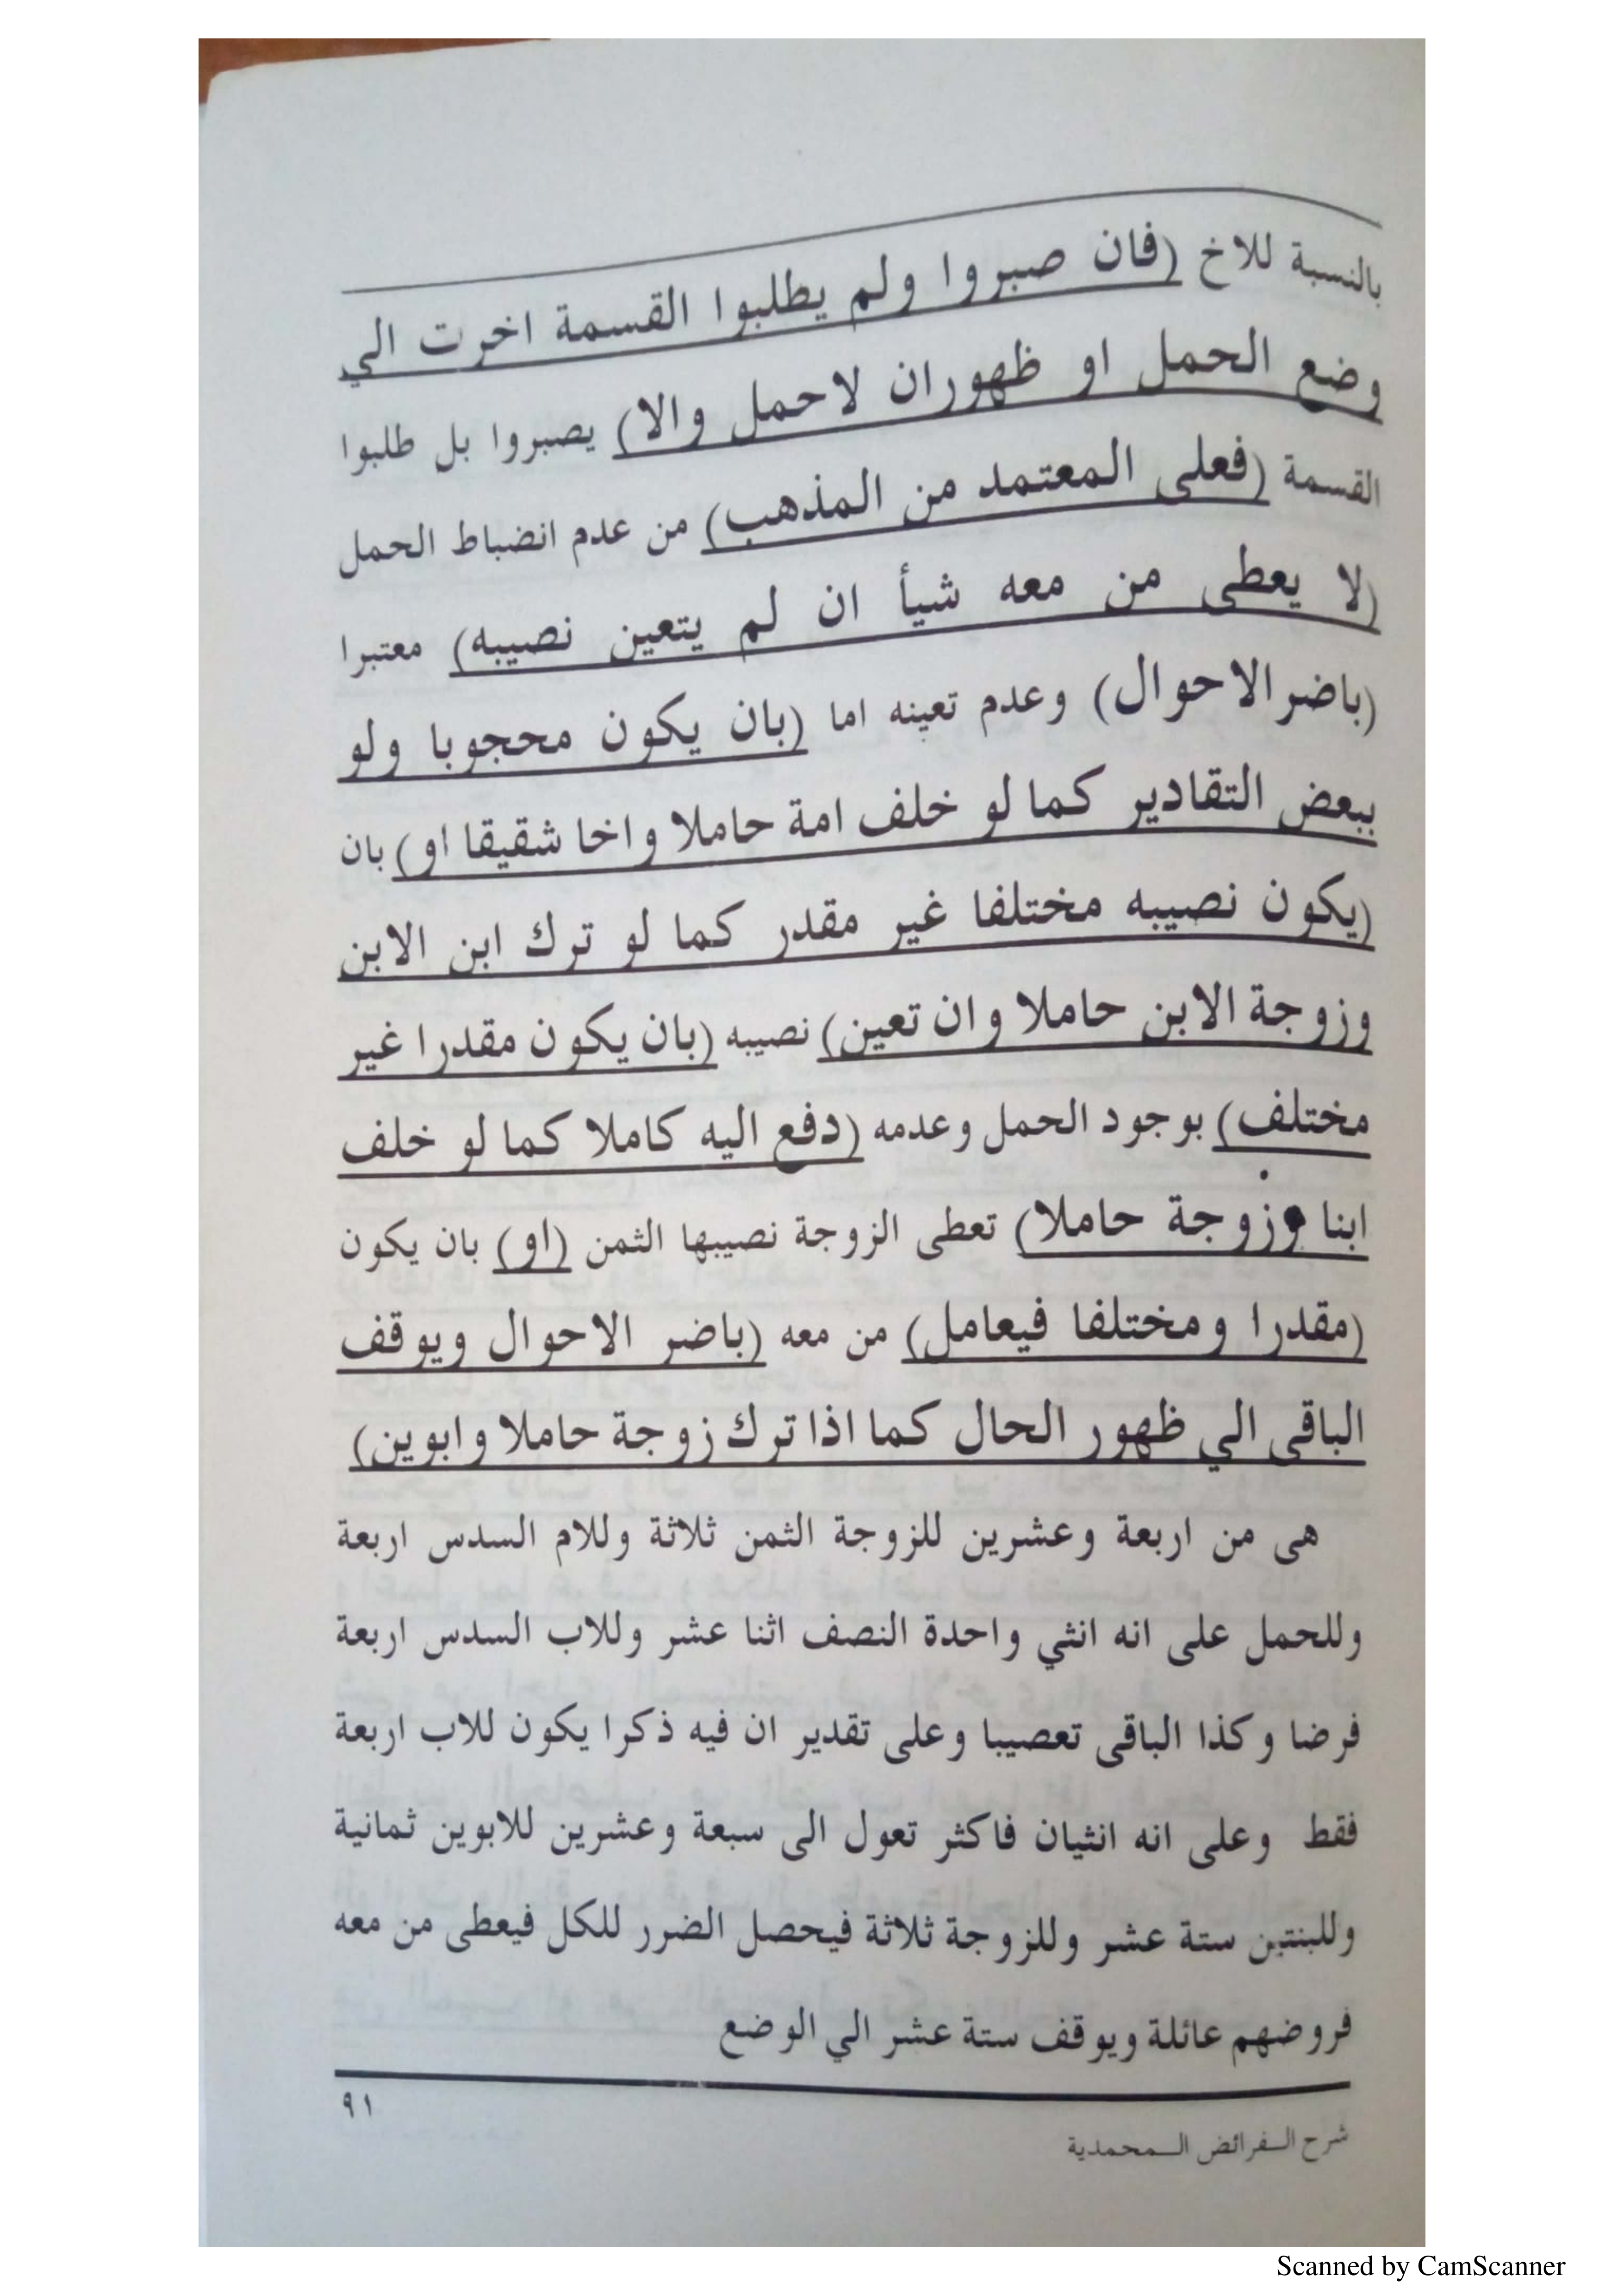 بالنسبة للاخ (فان صبروا ولم يطلبوا القسمة اخرت الي
وضع الحمل او ظهوران لاحمل والا) يصبروا بل طلبوا
القسمة (فعلى المعتمد من المذهب) من عدم انضباط الحمل
(لا يعطى من معه شيأ ان لم يتعين نصيبه) معتبرا
(باضر الاحوال) وعدم تعينه اما (بان يكون محجوبا ولو
ببعض التقادير كما لو خلف امة حاملا واخا شقيقا او) بان
(يكون نصيبه مختلفا غير مقدر كما لو ترك ابن الابن
وزوجة الابن حاملا وان تعين) نصيبه (بان يكون مقدرا غير
مختلف) بوجود الحمل وعدمه (دفع اليه كاملا كما لو خلف
ابنا وزوجة حاملا) تعطى الزوجة نصيبها الثمن (او) بان يكون
(مقدرا ومختلفا فيعامل) من معه (باضر الاحوال ويوقف
الباقى الي ظهور الحال كما اذا ترك زوجة حاملا وابوين)
هى من اربعة وعشرين للزوجة الثمن ثلاثة وللام السدس اربعة
وللحمل على انه انثي واحدة النصف اثنا عشر وللاب السدس اربعة
فرضا وكذا الباقى تعصيبا وعلى تقدير ان فيه ذكرا يكون للاب اربعة
فقط وعلى انه انثيان فاكثر تعول الى سبعة وعشرين للابوين ثمانية
وللبنتين ستة عشر وللزوجة ثلاثة فيحصل الضرر للكل فيعطى من معه
فروضهم عائلة ويوقف ستة عشر الي الوضع
٩١
شرح الـفرائض الـمحمدية
Scanned by CamScanner